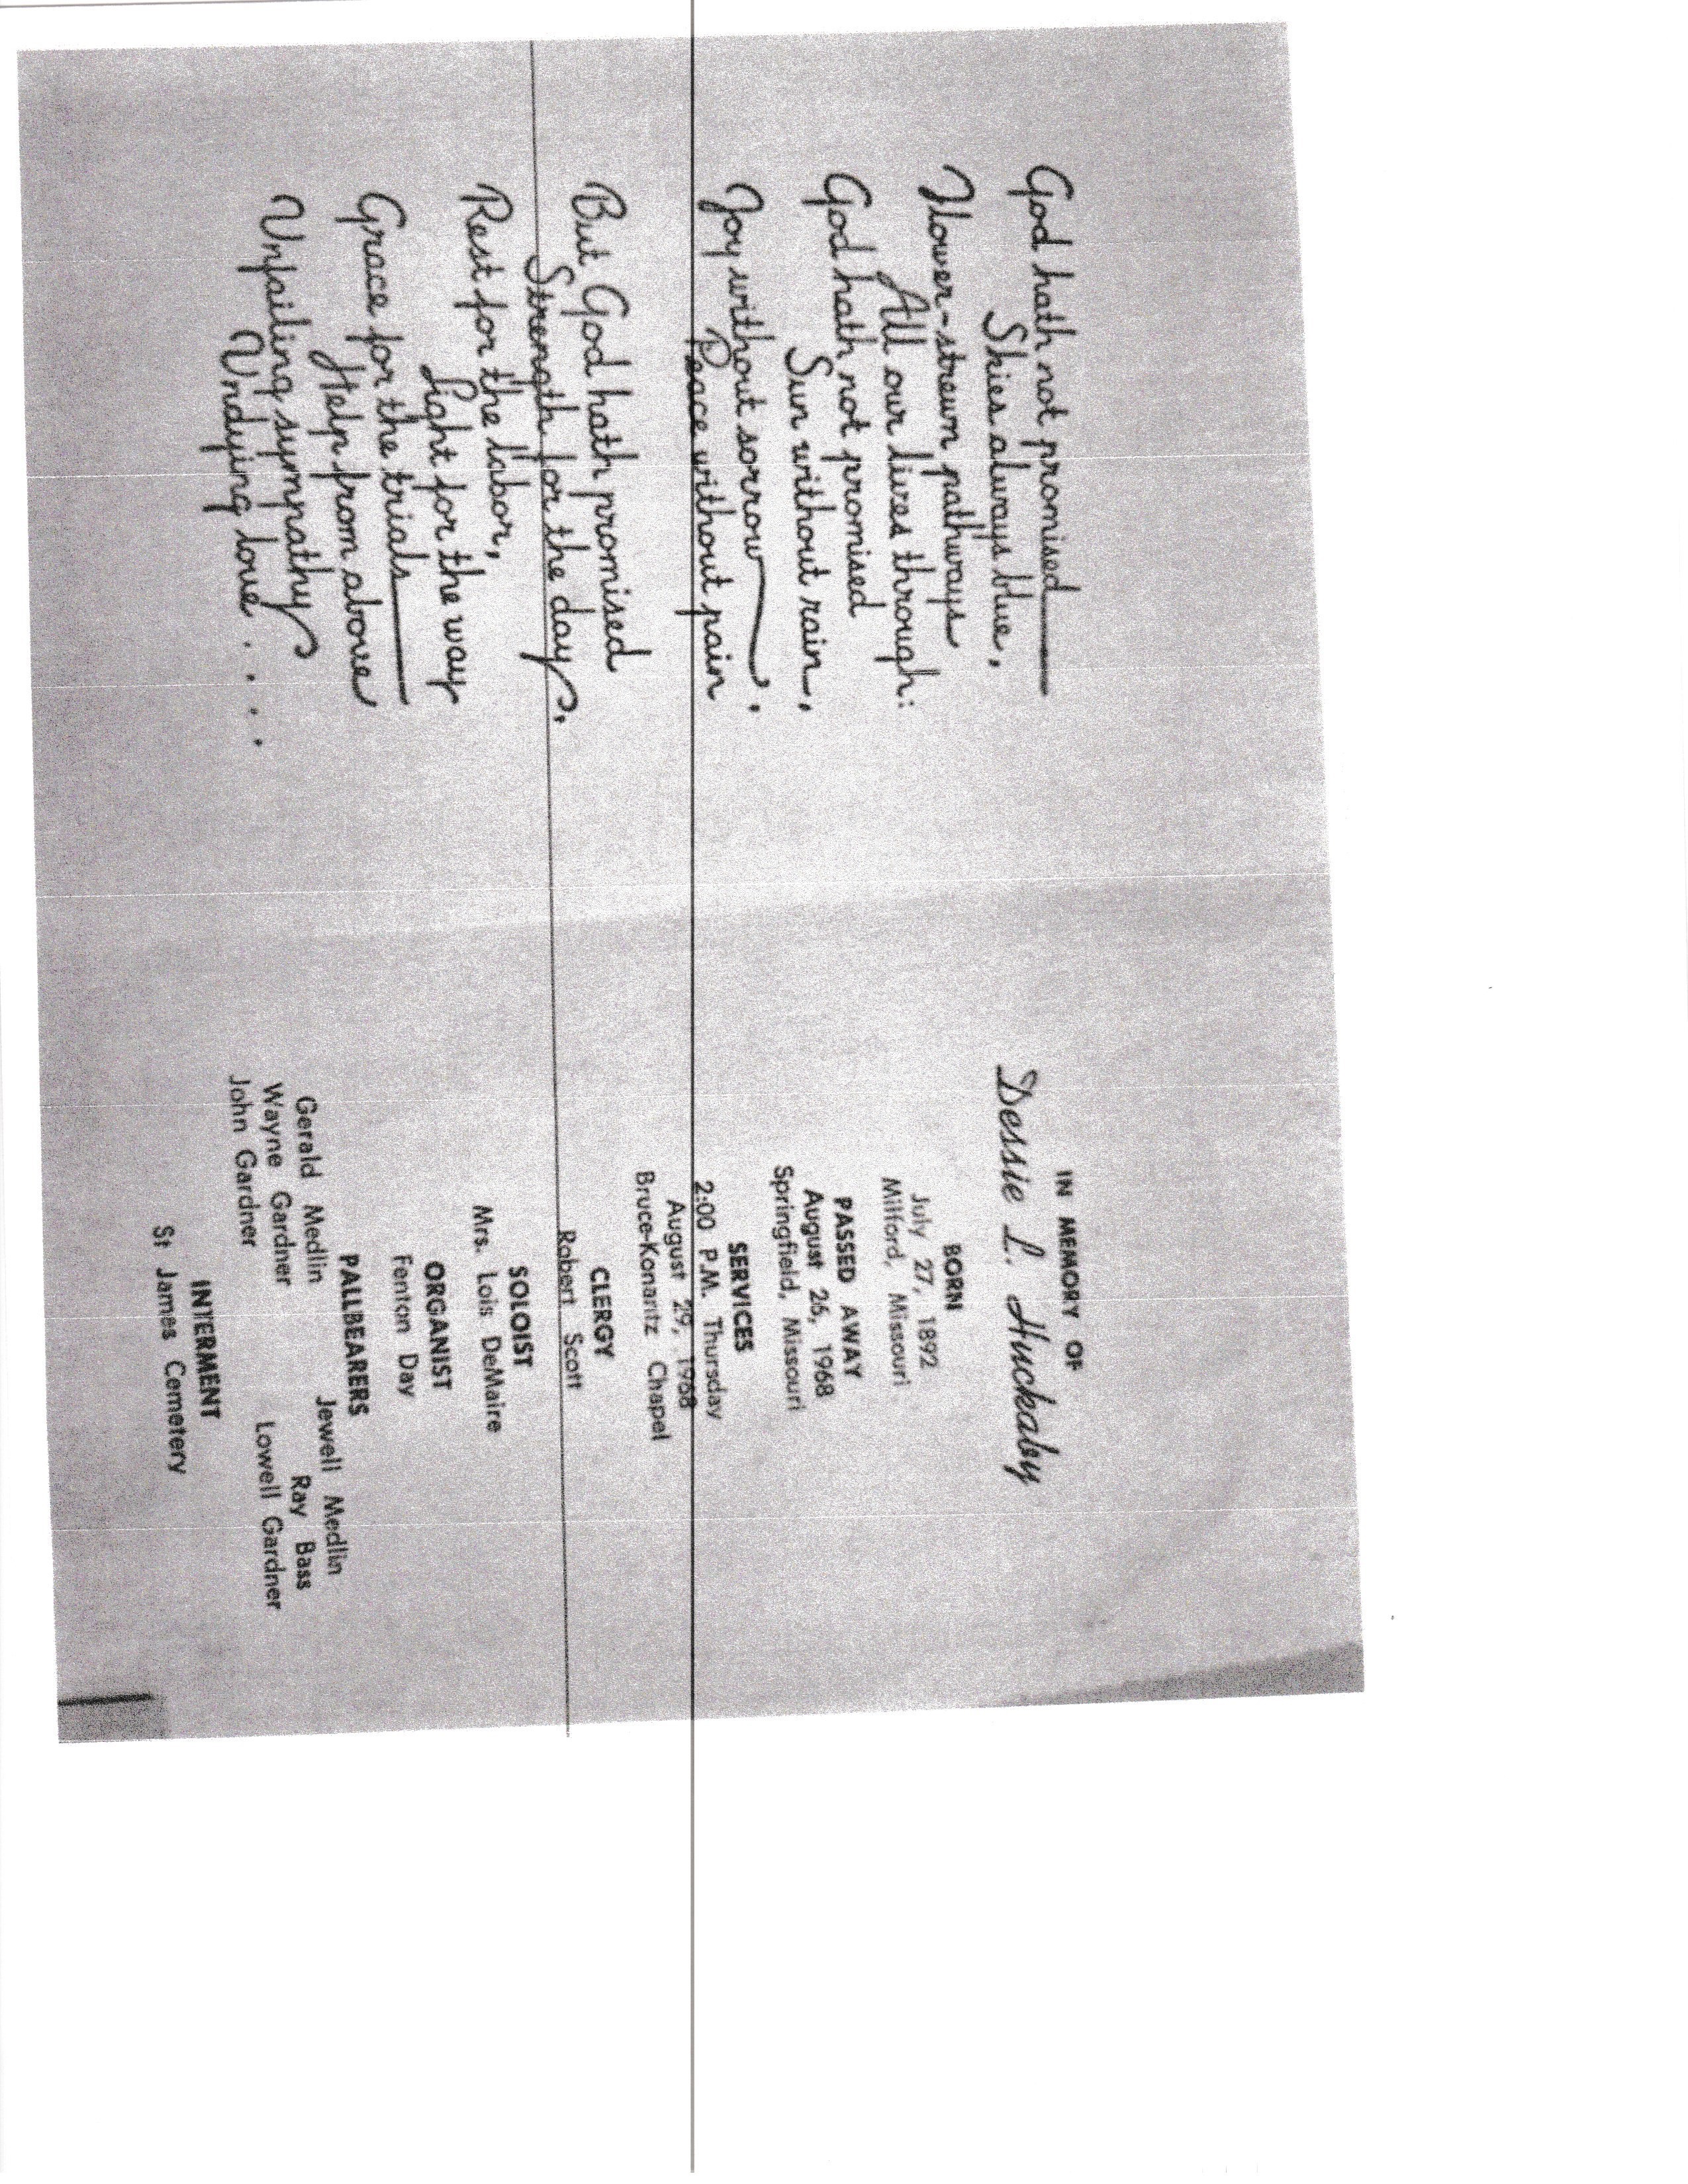 God hath not promised
Skies always blue,
Flower-strewn pathways
All our lives through:
God hath not promised
Sun without rain,
Joy without sorrow,
Peace without pain
But God hath promised
Strength for the day,
Rest for the labor,
Light for the way
Grace for the trials
Help from above
Unfailing sympathy
Undying love . . . .
IN MEMORY OF
Dessie L. Huckaby
BORN
July 27, 1892
Milford, Missouri
PASSED AWAY
August 26, 1968
Springfield, Missouri
SERVICES
2:00 P.M. Thursday
August 29, 1968
Bruce-Konantz Chapel
CLERGY
Robert Scott
SOLOIST
Mrs. Lois DeMaire
ORGANIST
Fenton Day
PALLBEARERS
Gerald Medlin Jewell Medlin
Wayne Gardner Ray Bass
John Gardner Lowell Gardner
INTERMENT
St James Cemetery